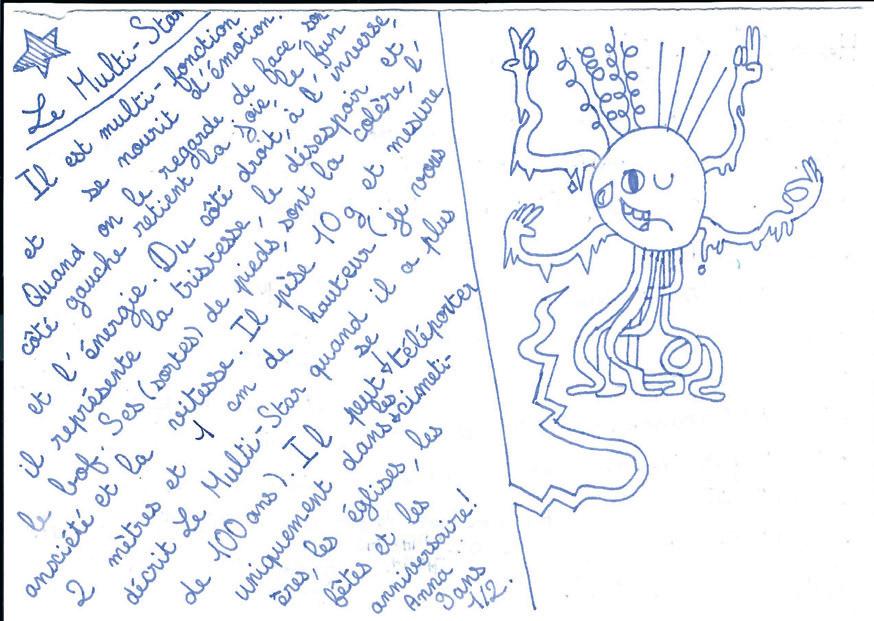 Le Multi-Star
Il est multi-fonction
et se nourit d'émotion.
Quand on le regarde de face son
côté gauche retient la joie, le fun
et l'énergie. Du côté droit, à l'inverse,
il représente la tristesse, le désespoir et,
le bof. Ses (sortes) de pieds, sont la colère, l'
ansciété et la vitesse. Il pèse 10 g et mesure
2 mètres et 1 cm de hauteur (je vous
décrit Le Multi-Star quand il a plus
de 100 ans). Il peut se téléporter
uniquement dans les cimeti-
ères, les églises, les
fêtes et les
anniversaire!
Anna
9 ans
1/2.